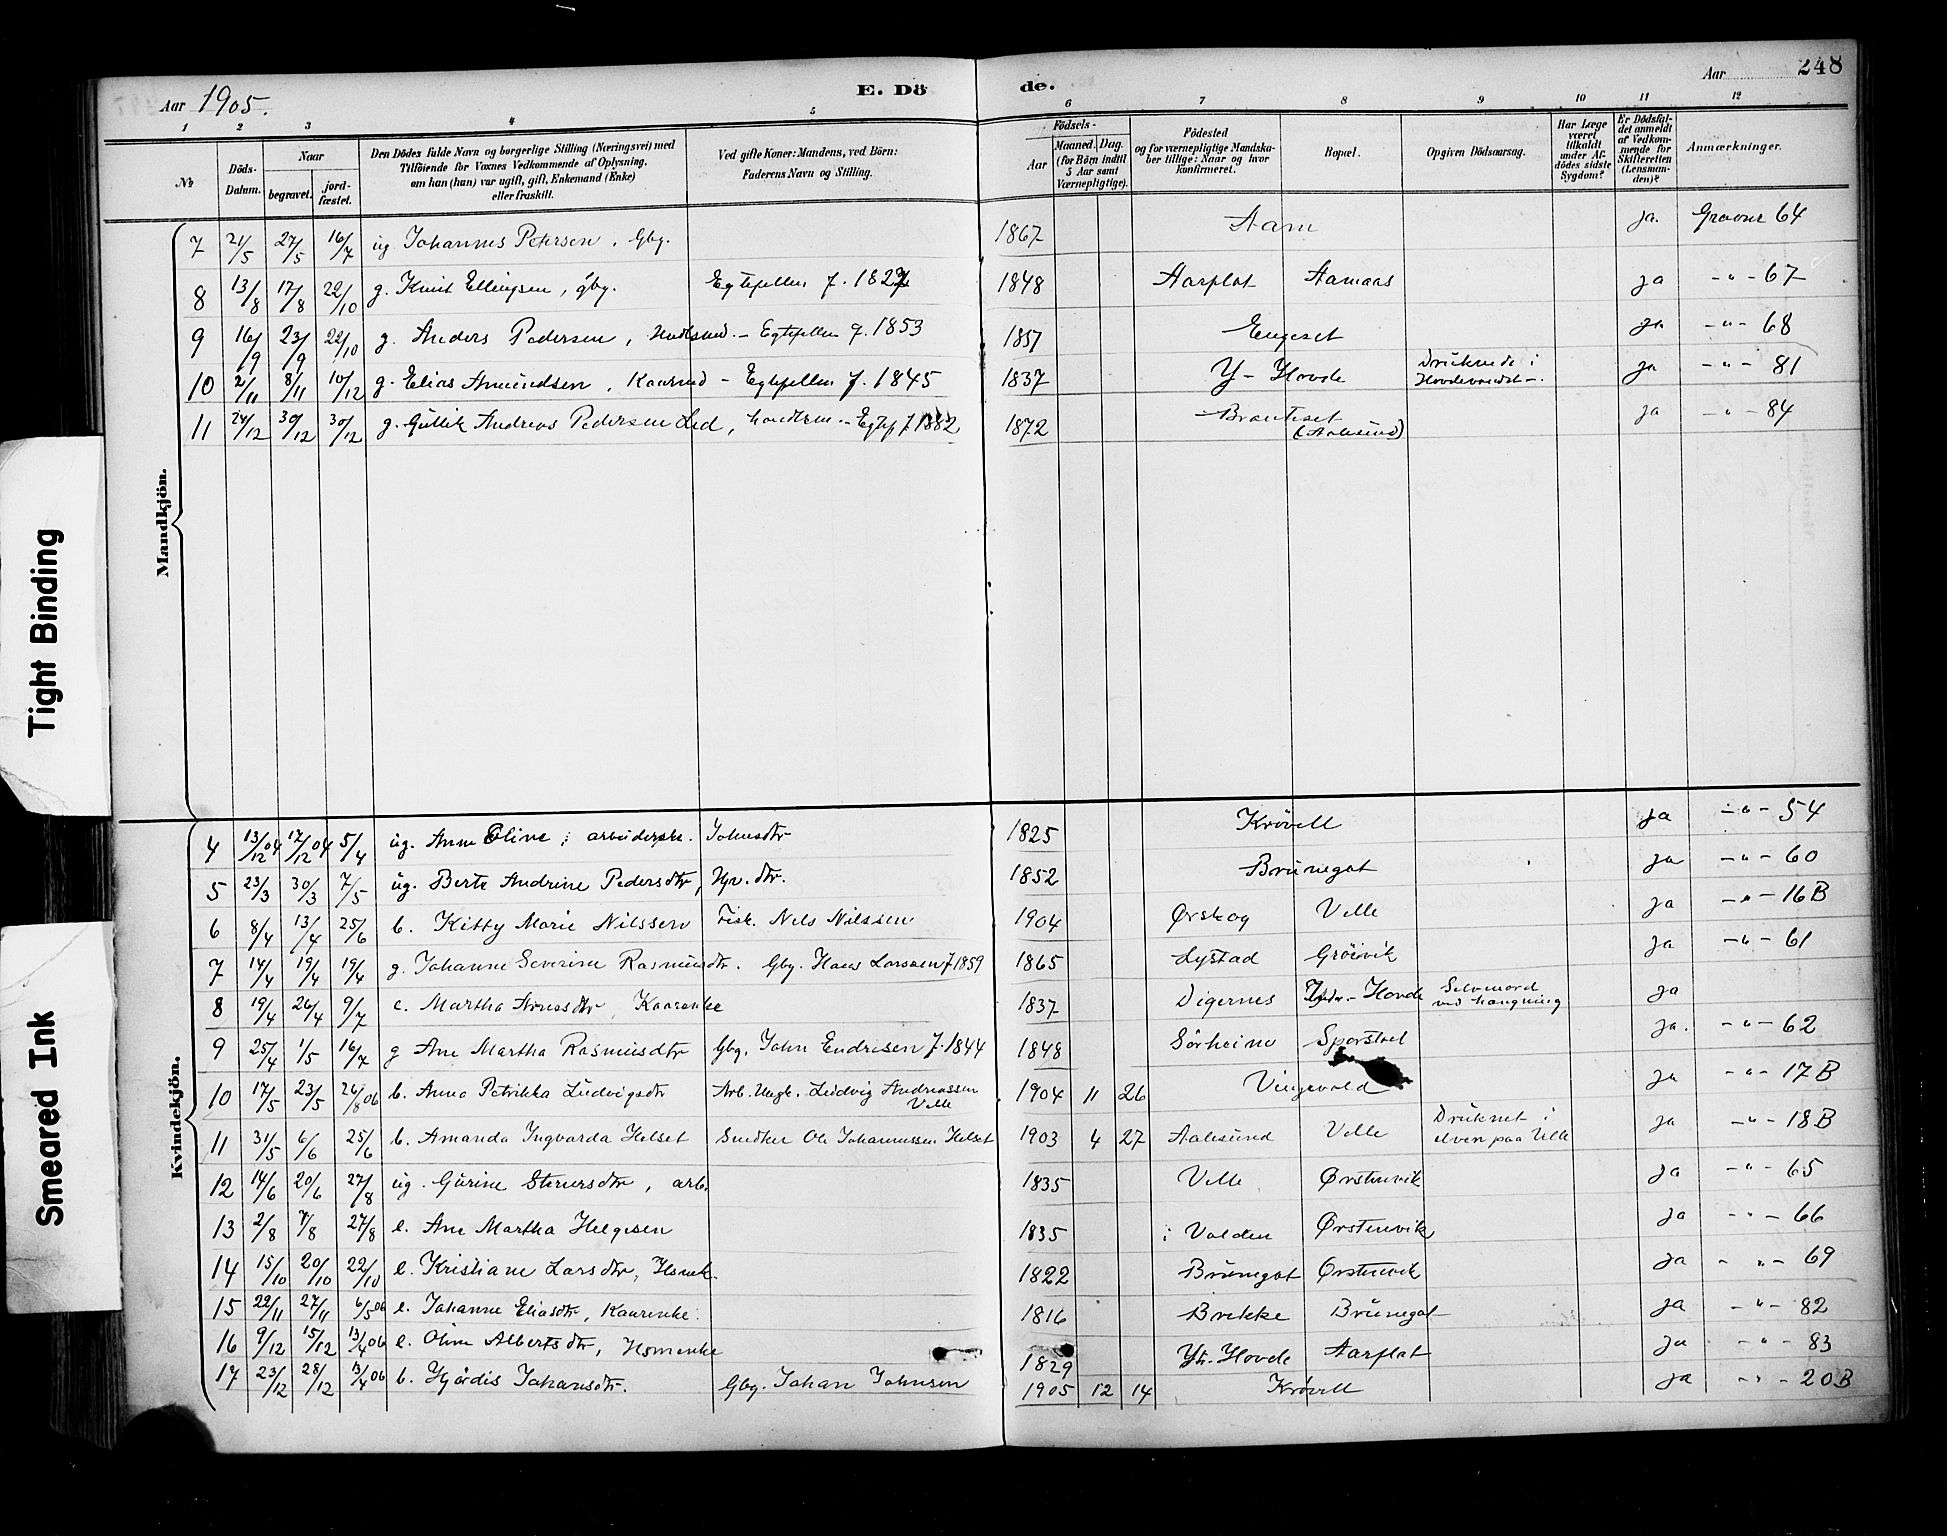 248
Aar 1905.
E. Dö de.
Aar
1 2 3 4 5 6 7 8 9 10 11 12
№
Döds-Datum.
Naar
begravet.
jord-fæstet.
Den Dödes fulde Navn og borgerlige Stilling (Næringsvei) med
Tilföiende for Voxnes Vedkommende af Oplysning,
om han (hun) var ugift, gift, Enkemand (Enke)
eller fraskilt.
Ved gifte Koner: Mandens, ved Börn:
Faderens Navn og Stilling.
Födsels-
Aar
Maaned. Dag.
(for Börn indtil
5 Aar samt
Værnepligtige).
Födested
og for værnepligtige Mandska-
ber tillige: Naar og hvor
konfirmeret.
Bopæl.
Opgiven Dödsaarsag.
Har Læge
været
tilkaldt
under Af-
dödes sidste
Sygdom?
Er Dödsfal-
det anmeldt
af Vedkom-
mende for
Skifteretten
(Lensman-
den)?
Anmærkninger.
Mandkjön.
7 21/5 27/5 16/7 ug. Johannes Petersen, Gbg. 1867 Aam ja. Gravnr 64
8 13/8 17/8 22/10 g. Knut Ellingsen, gbg. Egtefellen f. 1848 Aarflot Aamaas ja -"- 67
9 16/9 23/9 22/10 g. Anders Pedersen, - Egtefellen f. 1853 1857 Engeset ja -"- 68
10 2/11 8/11 10/12 g. Elias Amundsen, Kaarmd - Egtefellen f. 1845 1837 Y-Hovde Druknede i ja -"- 81
Hovdevandet-.
11 24/12 30/12 30/12 g. Gullik Andreas Pedersen Lid, - Egtef f 1882 1872 Brauteset ja -"- 84
(Aalesund)
Kvindekjön.
4 13/12 04 17/12 04 5/4 ug. Anne Oline, Johnsdtr 1825 Krövell ja -"- 54
5 23/3 30/3 7/5 ug. Berte Andrine Pedersdtr, 1852 Brünegot ja -"- 60
6 8/4 13/4 25/6 b. Kitty Marie Nilssen Fisk. Nils Nilssen 1904 Ørskog Velle ja -"- 16B
7 14/4 19/4 19/4 g. Johanne Severine Rasmusdtr. Gbg. Hans Larssen f 1859 1865 Lystad Grövik ja -"- 61
8 19/4 26/4 9/7 e. Martha Arnesdtr, Kaarenke 1837 Digernes Indr.-Hovde Selvmord ja
ved hængning
9 25/4 1/5 16/7 g Ane Martha Rasmusdtr Gbg. John Endresen f. 1844 1848 Sörheim Sporstøl ja. -"- 62
10 17/5 23/5 26/8 06 b. Anna Petrikka Ludvigsdtr Arb. Ungk. Ludvig Andreassen 1904 11 26 Vingevold ja -"- 17B
Velle
11 31/5 6/6 25/6 b. Amanda Ingvarda Helset Snedker Ole Johannessen Helset 1903 4 27 Aalesund Velle Druknet i ja -"- 18B
elven paa Velle
12 14/6 20/6 27/8 ug. Gurine Steinersdtr, arb. 1835 Velle Ørstenvik ja -"- 65
13 2/8 7/8 27/8 e. Ane Martha Helgesen 1835 i Volden Ørstenvik ja -"- 66
14 15/10 20/10 22/10 e. Kristiane Larsdtr, 1822 Brünegot Ørstenvik ja -"- 69
15 22/11 27/11 6/5 06 e. Johanne Eliasdtr, Kaarenke. 1816 Brekke Brünegot ja -"- 82
16 9/12 15/12 13/4 06 e. Oline Albertsdtr, Hsmenke 1829 Ytr. Hovde Aarflot ja -"- 83
17 23/12 28/12 13/4 06 b. Hjördis Johansdtr. Gbg. Johan Johnsen 1905 12 14 Krövell ja -"- 20B
Tight Binding
Smeared Ink